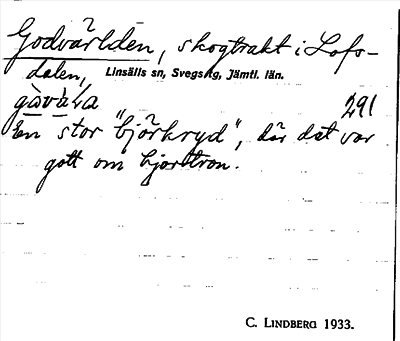 Godvärlden, skogtrakt i Lofs-
dalen, Linsälls sn, Svegs tg, Jämtl. län.
291
En stor "björkryd", där det var
gott om hjortron.
C. LINDBERG 1933.